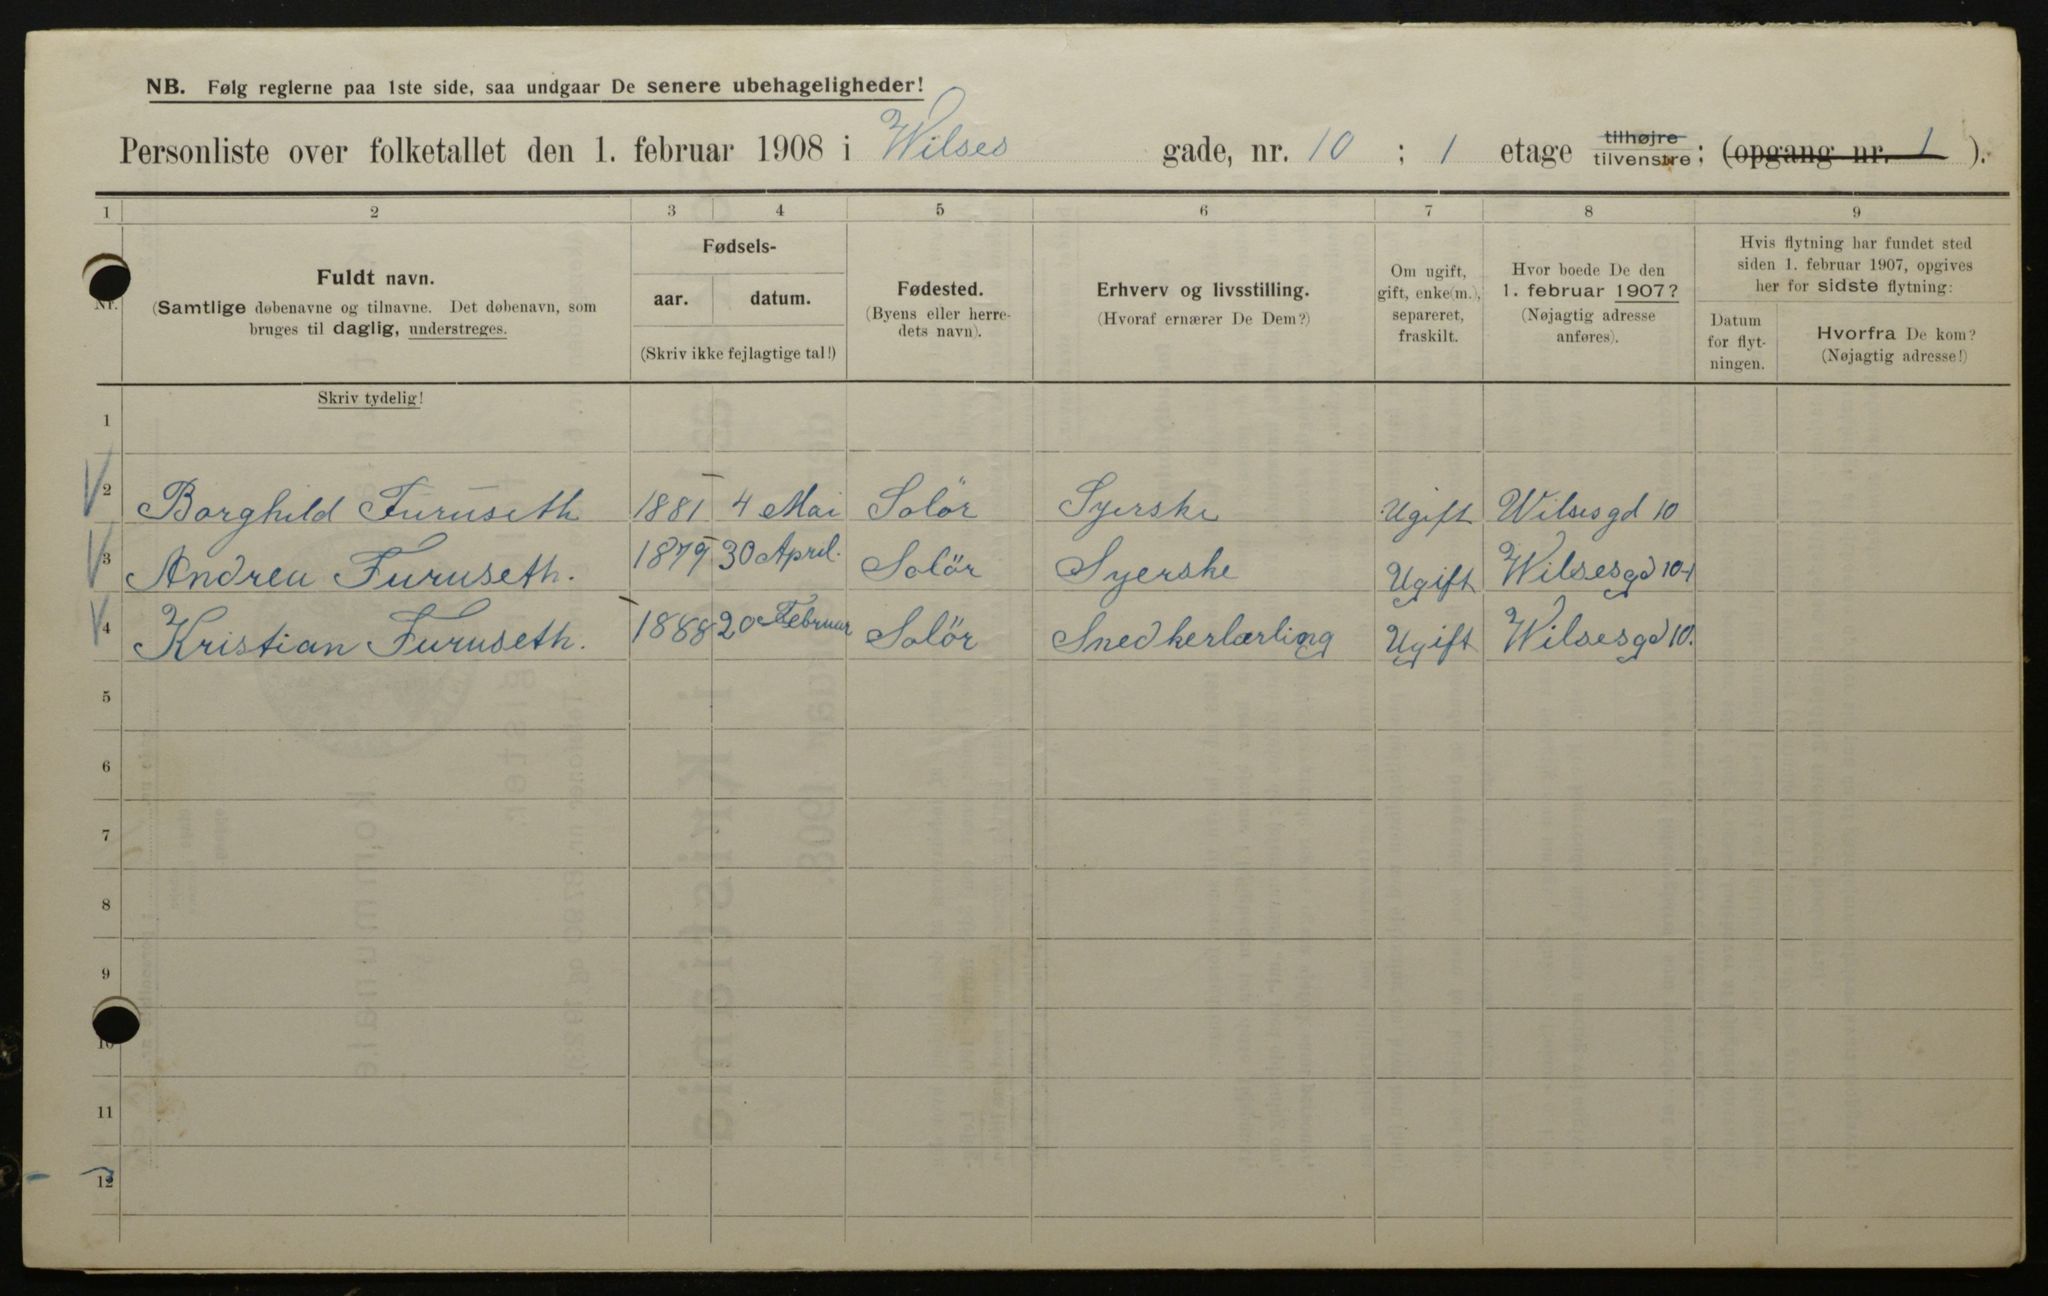 NB. Følg reglerne paa 1ste side, saa undgaar De senere ubehageligheder!
Personliste over folketallet den 1. februar 1908 i Wilses gade, nr. 10 ; 1 etage tilhøjre tilvenstre ; (opgang nr. 1 ).
1 2 3 4 5 6 7 8 9
Nr.
Fuldt navn.
(Samtlige døbenavne og tilnavne. Det døbenavn, som
bruges til daglig, understreges.
Skriv tydelig!
Fødsels-
aar. datum.
(Skriv ikke fejlagtige tal!)
Fødested.
(Byens eller herre-
dets navn).
Erhverv og livsstilling.
(Hvoraf ernærer De Dem?)
Om ugift,
gift, enke(m.),
separeret,
fraskilt.
Hvor boede De den
1. februar 1907?
(Nøjagtig adresse
anføres).
Hvis flytning har fundet sted
siden 1. februar 1907, opgives
her for sidste flytning:
Datum
for flyt-
ningen.
Hvorfra De kom?
(Nøjagtig adresse!)
1
2 Borghild Furuseth 1881 4 Mai Solör Syerske Ugift Wilsesgd 10
3 Andrea Furuseth. 1879 30 April. Solör Syerske Ugift Wilsesgd 10-1
4 Kristian Furuseth. 1888 20 Februar Solör Snedkerlærling Ugift Wilsesgd 10.
5
6
7
8
9
10
11
12